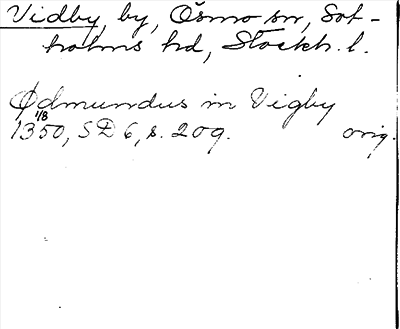 Vidby, by, Ösmo sn, Sot-
holms hd, Stockh. l.
Ødmundus in Vigby
1350, 1/8 SD 6, s. 209. orig.